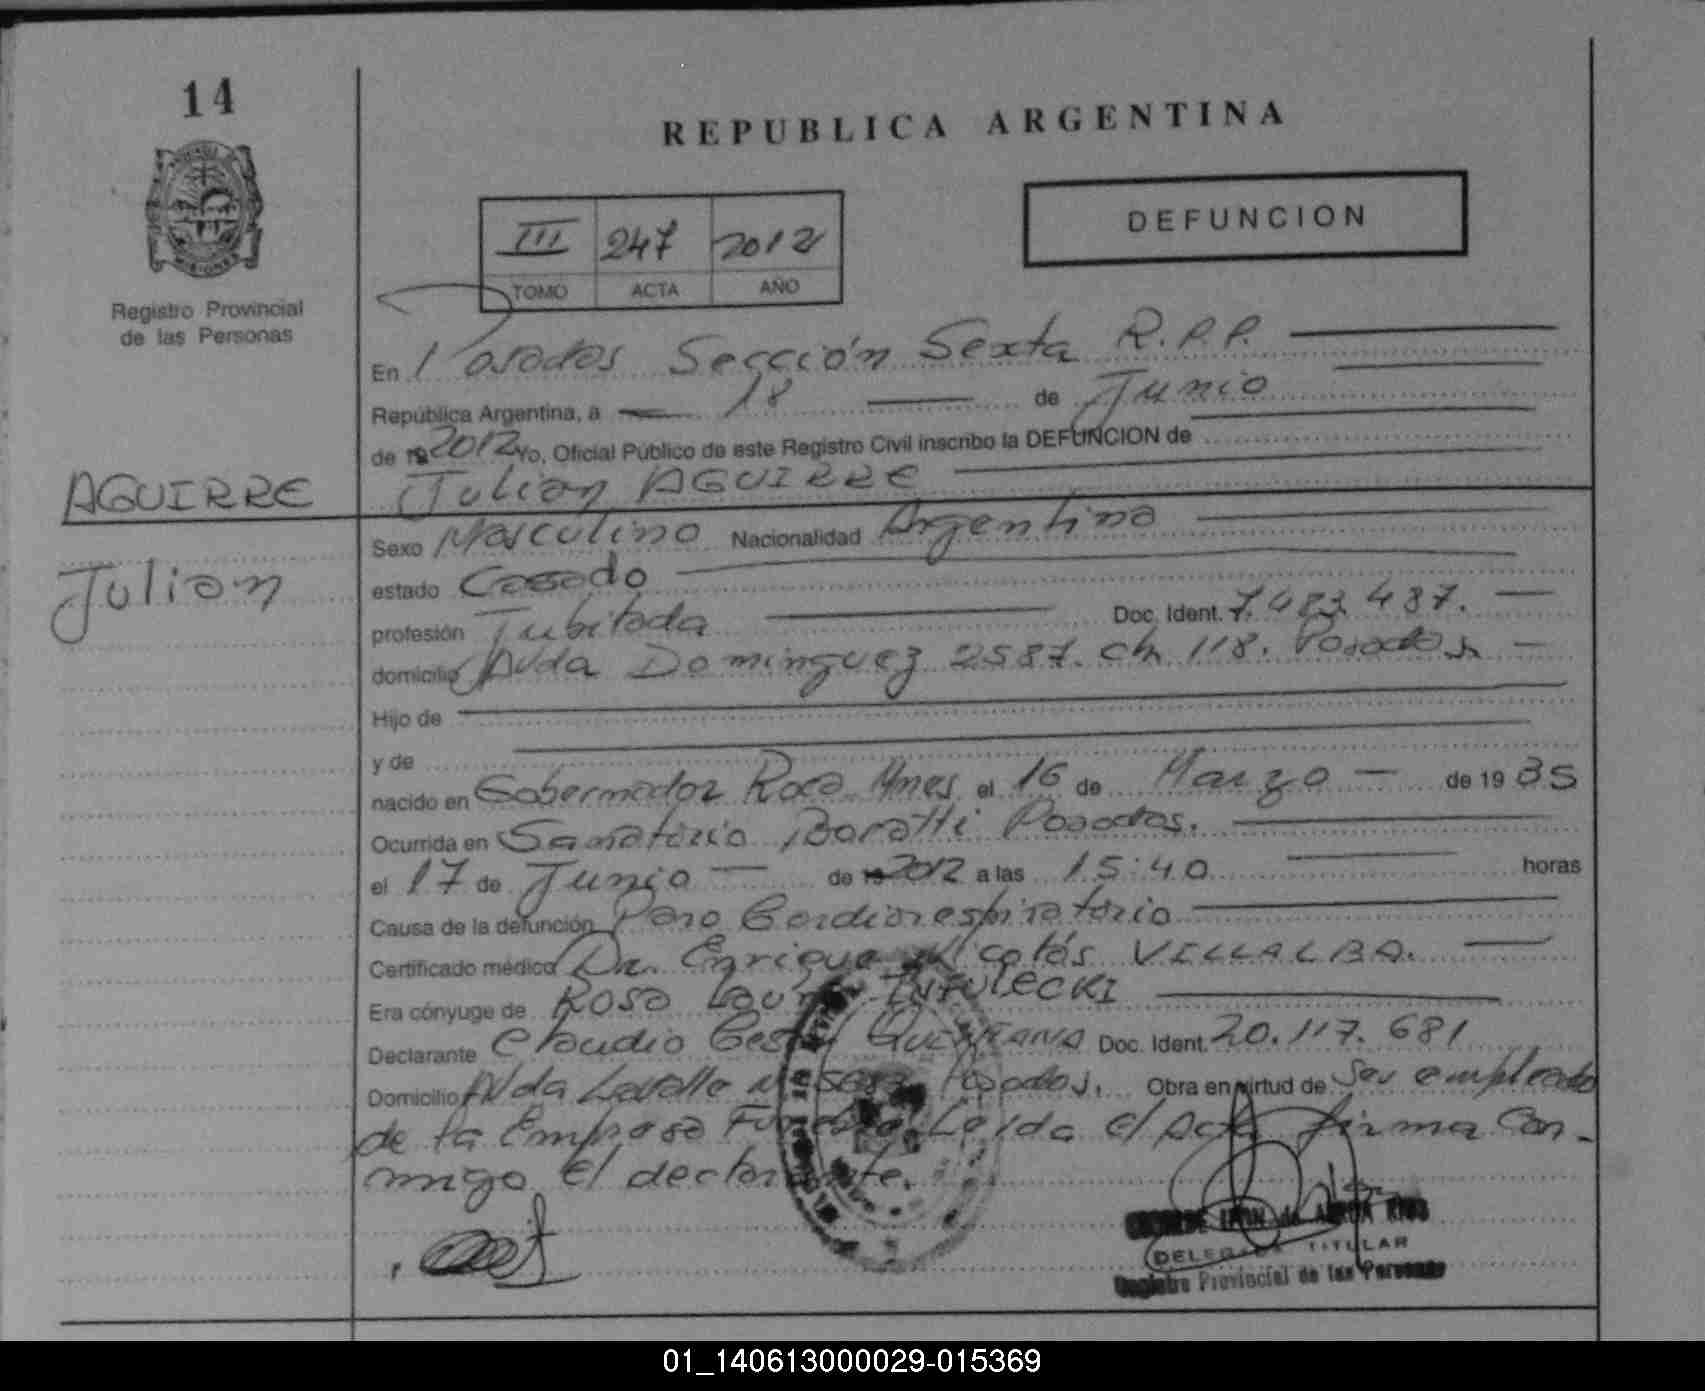 14
REPUBLICA ARGENTINA
DEFUNCION
III 247 2012
TOMO ACTA AÑO
MISIONES
Registro Provincial
de las Personas
En Posadas Sección Sexta R.P.P.
República Argentina, a 18 de Junio
de 19 2012 Yo, Oficial Público de este Registro Civil inscribo la DEFUNCION de
AGUIRRE
Julian AGUIRRE
Julian
Sexo Masculino Nacionalidad Argentina
estado Casado
profesión Jubilada Doc. Ident. 7.483.487.
domicilio Avda Dominguez 2587. ch 118. Posadas
Hijo de
y de
nacido en Gobernador Roca Mnes el 16 de Marzo de 19 35
Ocurrida en Sanatorio Boratti Posadas.
el 17 de Junio de 19 2012 a las 15:40 horas
Causa de la defunción Paro Cardiorespiratorio
Certificado médico Dr. Enrique Nicolás VILLALBA.
Era cónyuge de Rosa Laura
Declarante Claudio Cesar QUINTANA Doc. Ident. 20.117.681
Domicilio Avda Lavalle Posadas. Obra en virtud de Ser empleado
de la Empresa Leída el Acta firma Con-
migo el declarante.
DELEGADA TITULAR
Registro Provincial de las Personas
01_140613000029-015369